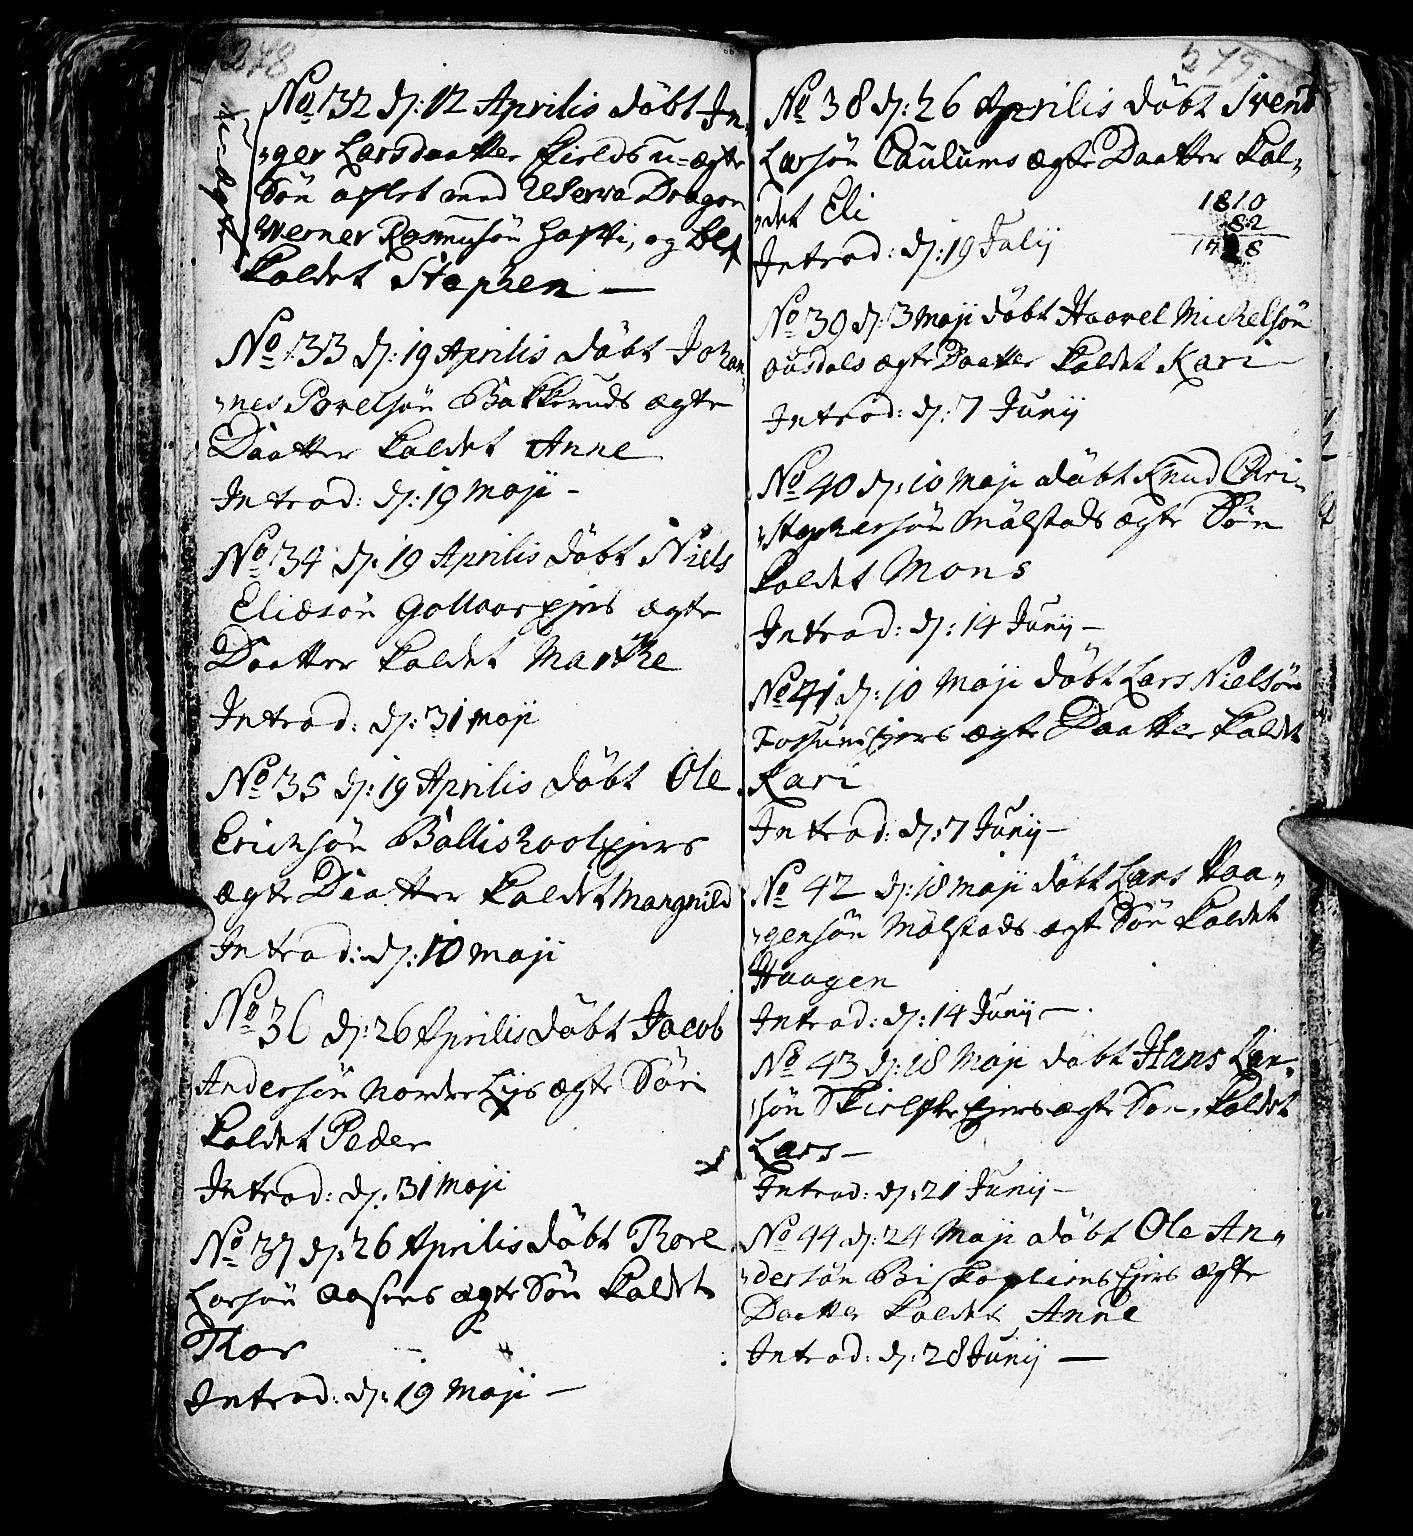 278
No 32 d: 12 Aprilis döbt In-
ger Larsdaatter Skields u-ægte
Sön aflet med Reserva Dragon
Werner Rasmusön Hafti, og blef
kaldet Stephen —
No 33 d: 19 Aprilis döbt Johan-
nes Povelsön Bakkeruds ægte
Daatter kaldet Anne
Introd: d: 19 Maji -
No 34 d: 19 Aprilis döbt Niels
Eliæsön Gollaarejers ægte
Daatter kaldet Marthe
Introd: d: 31 Maji
No 35 d: 19 Aprilis döbt Ole
Ericksön Ballishoolejers
ægte Daatter kaldet Margnild
Introd: d: 10 Maji
No 36 d: 26 Aprilis döbt Jacob
Andersön Nordre Lijs ægte Sön
kaldet Peder
Introd: d: 31 Maji
No 37 d: 26 Aprilis döbt Thore
Larsön Aasens ægte Sön kaldet
Thor
Introd: d: 19 Maji —
279
No 38 d: 26 Aprilis döbt Svend
Larsön Caulums ægte Daatter kal-
det Eli
1810
82
17 8
Introd: d: 19 Julij
No 39 d: 3 Maji döbt Haavel Michelsön
Ousdals ægte Daatter kaldet Kari
Introd: d: 7 Junij
No 40 d: 10 Maji döbt Knud Chri-
stophersön Målstads ægte Sön
kaldet Mons
Introd: d: 14 Junij —
No 41 d: 10 Maji döbt Lars Nielsön
Fossumejers ægte Daatter kaldet
Kari
Introd: d: 7 Junij —
No 42 d: 18 Maji döbt Lars Haa-
gensön Målstads ægte Sön kaldet
Haagen
Introd: d: 14 Junij —
No 43 d: 18 Maji döbt Hans Lar-
sön ejers ægte Sön, kaldet
Lars —
Introd: d: 21 Junij —
No 44 d: 24 Maji döbt Ole An-
dersön Biskopliens Ejers ægte
Daatter kaldet Anne
Introd: d: 28 Junij —